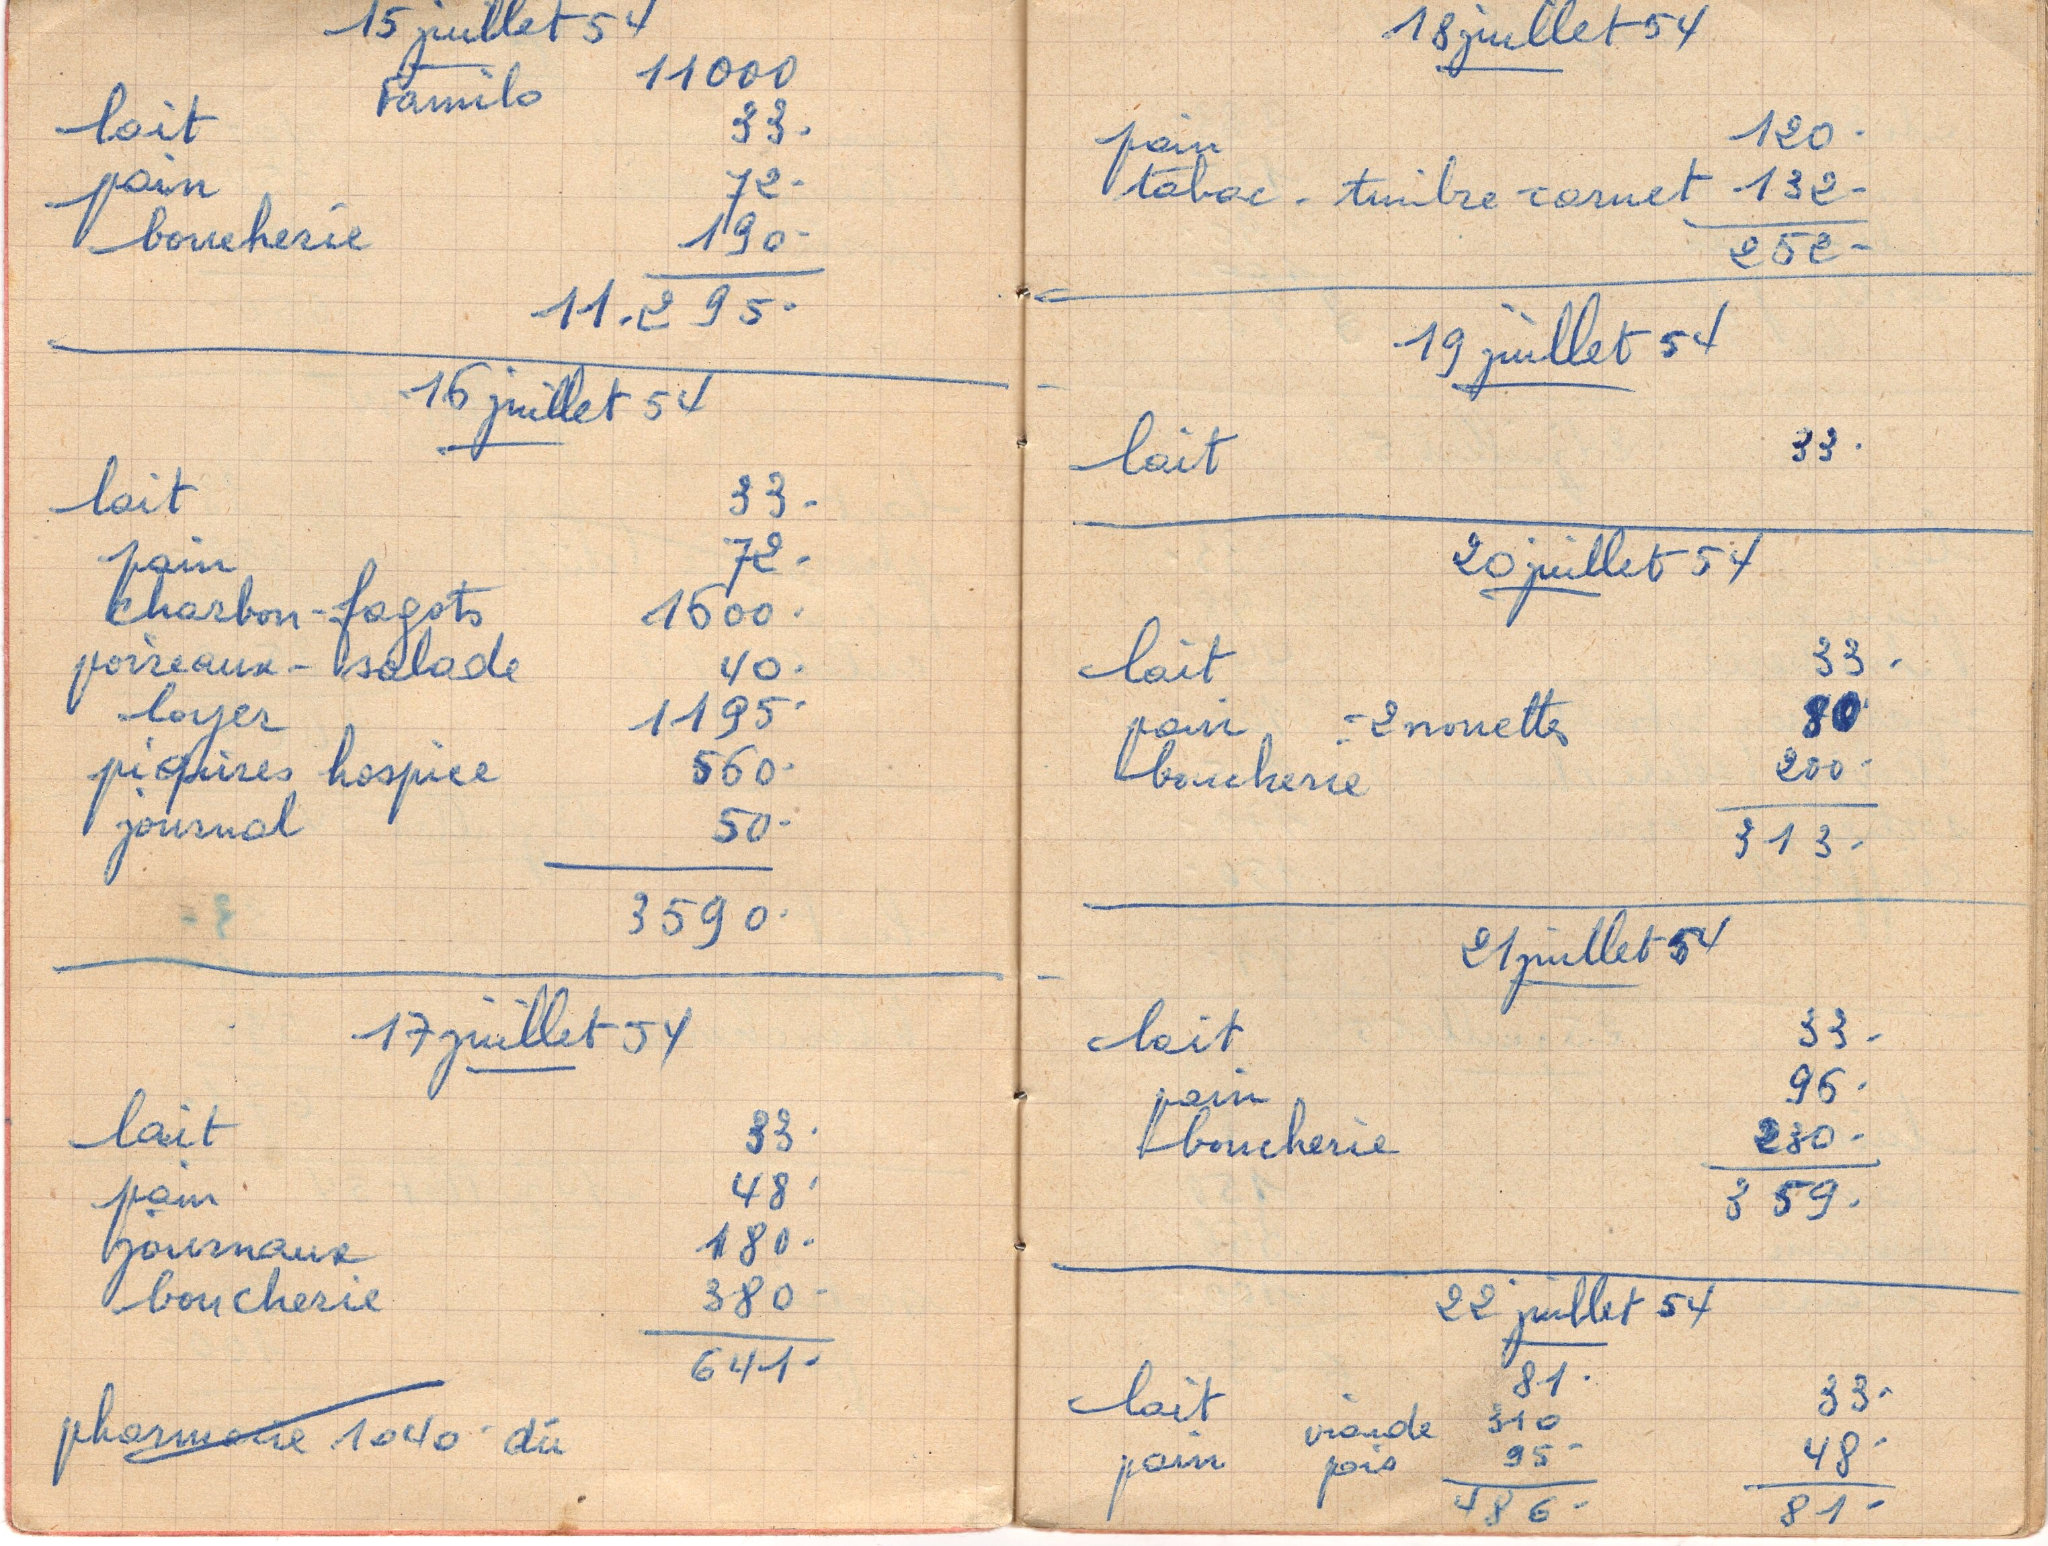 15 juillet 54
Familo 11000
lait 33.
pain 72-
boucherie 190-
11.295-
16 juillet 54
lait 33-
pain 72-
charbon-fagots 1600.
poireaux-salade 40.
loyer 1195-
piqûres hospice 560-
journal 50-
3590-
17 juillet 54
lait 33.
pain 48.
journaux 180-
boucherie 380-
641-
pharmacie 1040- dû
18 juillet 54
pain 120-
tabac - timbre-carnet 132-
252-
19 juillet 54
lait 33.
20 juillet 54
lait 33.
pain = 2 80
boucherie 200-
313-
21 juillet 54
lait 33-
pain 96.
boucherie 230-
359.
22 juillet 54
81.
lait viande 310 33.
pain pois 95- 48-
486- 81-